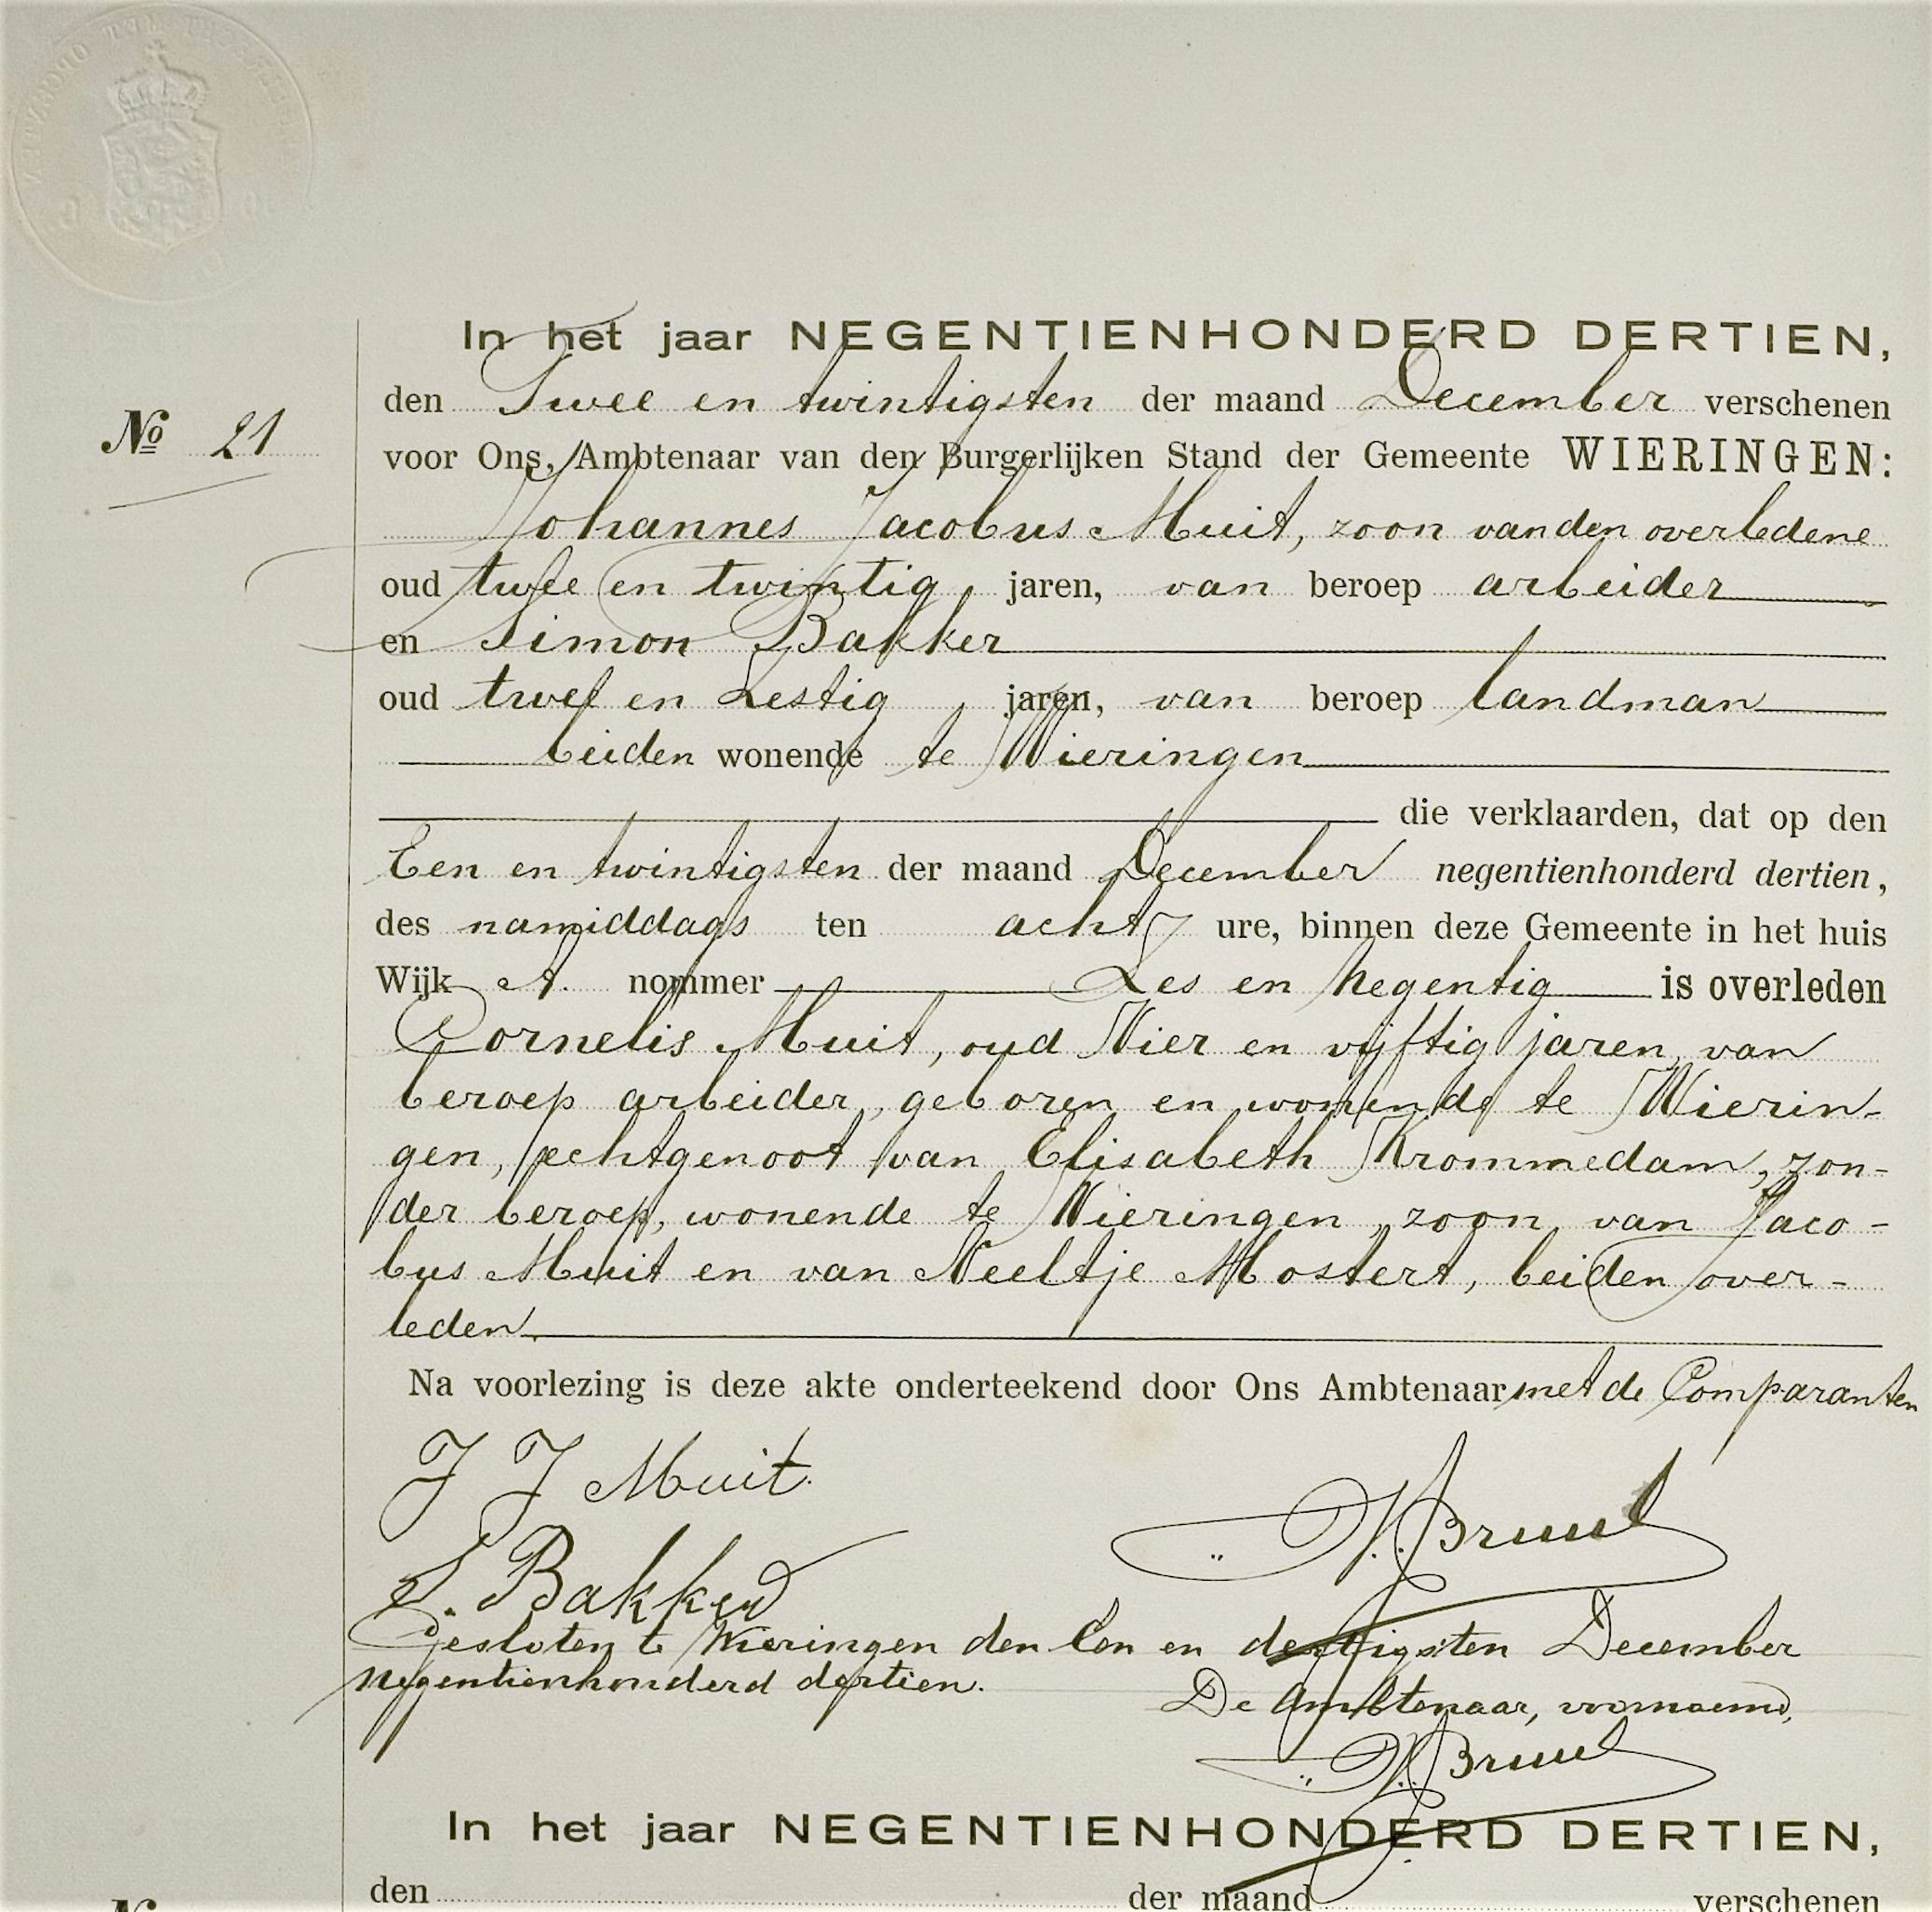 In het jaar NEGENTIENHONDERD DERTIEN,
den Twee en twintigsten der maand December verschenen
No 21
voor Ons, Ambtenaar van den Burgerlijken Stand der Gemeente WIERINGEN:
Johannes Jacobus Muit, zoon van den overledene
oud twee en twintig jaren, van beroep arbeider
en Simon Bakker
oud twee en Zestig jaren, van beroep landman
beiden wonende te Wieringen
die verklaarden, dat op den
Een en twintigsten der maand December negentienhonderd dertien,
des namiddags ten acht ure, binnen deze Gemeente in het huis
Wijk A. nommer Zes en Negentig is overleden
Cornelis Muit, oud Vier en vijftig jaren, van
beroep arbeider, geboren en wonende te Wierin-
gen, echtgenoot van Elisabeth Krommedam, zon-
der beroep, wonende te Wieringen, zoon van Jaco-
bus Muit en van Neeltje Mostert, beiden over-
leden.
Na voorlezing is deze akte onderteekend door Ons Ambtenaar met de Comparanten
J J Muit.
S. Bakker
Gesloten te Wieringen den Een en dertigsten December
negentienhonderd dertien.
De Ambtenaar, voornoemd,
In het jaar NEGENTIENHONDERD DERTIEN,
den der maand verschenen